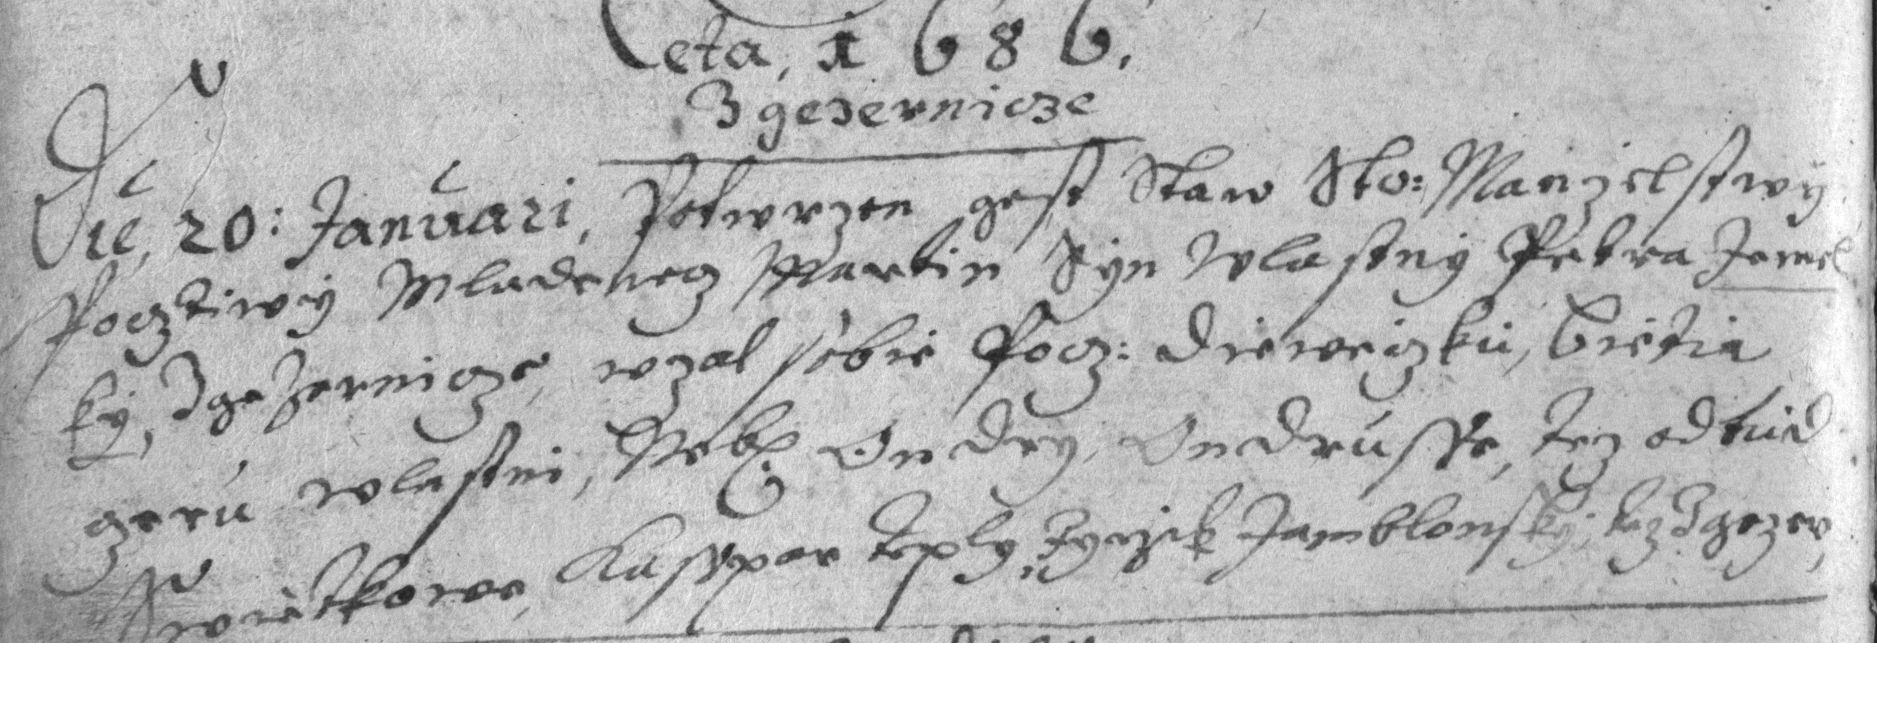 Leta, 1686.
Z gezernicze
Die, 20: Januari, Potwrzen gest Staw Sto: Manzelstwy
Pocztiwy Mladenecz Martin Syn wlastny Petra Jemel
ky, Z gezernicze, wzal sobie Pocz: dieweczku,
czeru wlastni, Neb: Ondry Ondrusse, tez odtud
Swietkowe, Kasspar teply, Jamblonsky, tez Z gezer,